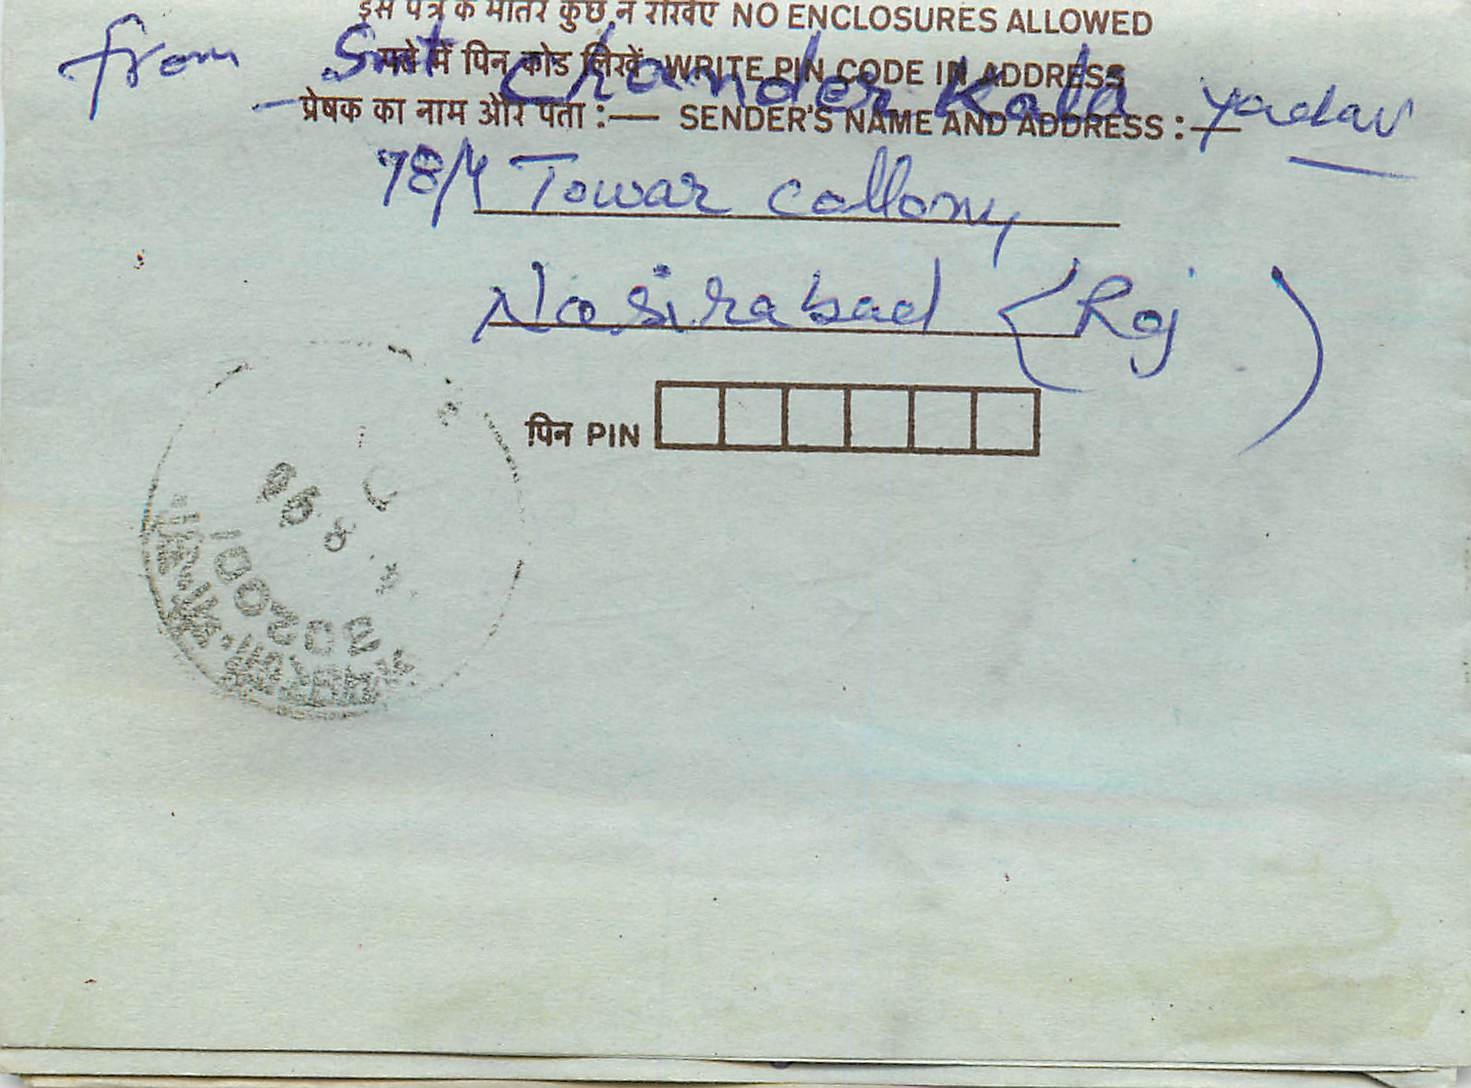 इस पत्र के भीतर कुछ न रखिए NO ENCLOSURES ALLOWED
पते में पिन कोड लिखें WRITE PIN CODE IN ADDRESS
from Smt Chander Kala Yadav
प्रेषक का नाम और पता :— SENDER'S NAME AND ADDRESS :—
78/4 Towar collony
Nasirabad (Raj)
पिन PIN
302001